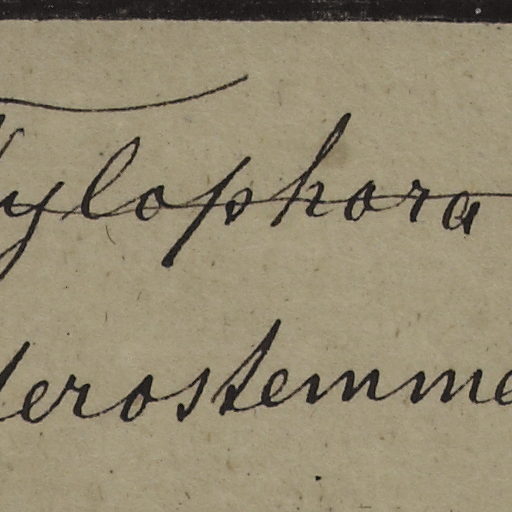 Tylophora
terostemme